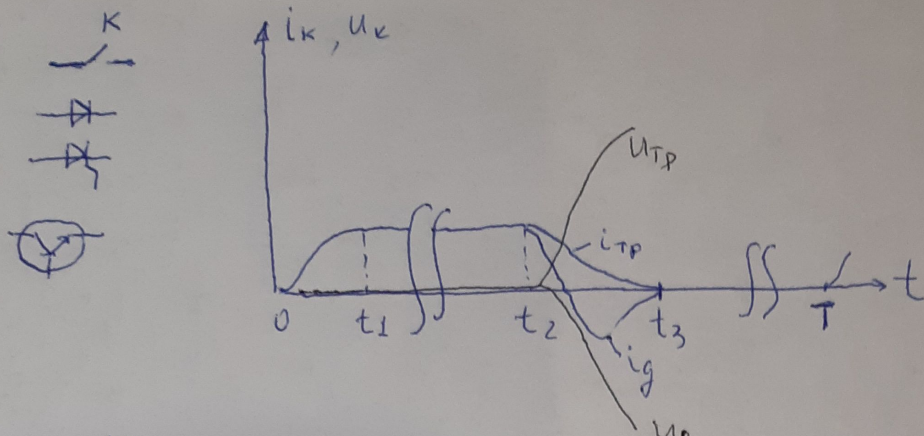 K
iк, uк
uтр
iтр
0
t1
t2
t3
T
t
ig